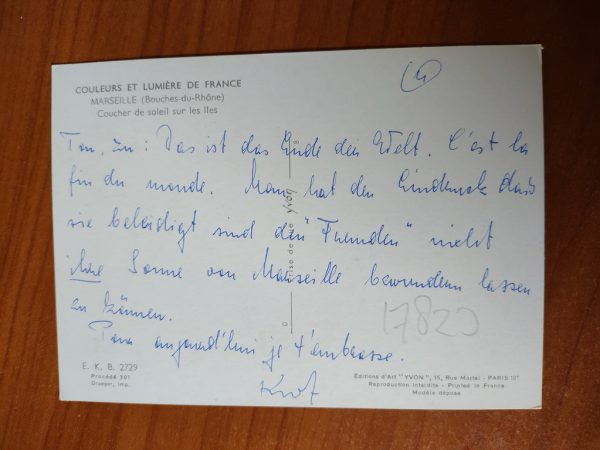 COULEURS ET LUMIÈRE DE FRANCE
MARSEILLE (Bouches-du-Rhône)
Coucher de soleil sur les Iles
4
: Das ist das Ende der Welt. C'est la
fin du monde. Man hat den Eindruck dass
sie beleidigt sind den "Fremden" nicht
ihre Sonne von Marseille bewundern lassen
zu können.
Pour aujourd'hui je t'embrasse.
yvon
17820
E. K. B. 2729
Procédé 301
Draeger, Imp.
Editions d'Art "YVON", 15, Rue Martel - PARIS 10e
Reproduction Interdite - Printed in France
Modèle déposé